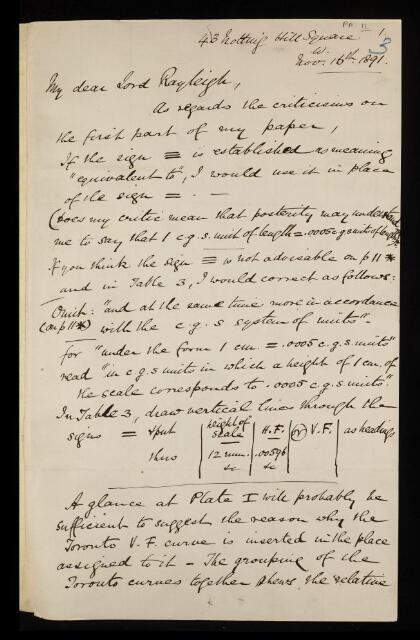 43 Notting Hill Square
W.
Nov. 16th 1891.
My dear Lord Rayleigh,
As regards the criticisms on
the first part of my paper,
If the sign ≡ is established as meaning
"equivalent to", I would use it in place
of the sign = . —
(Does my critic mean that posterity may understand
me to say that 1 c.g.s. unit of length = .0005 c.g.s. units of length?)
If you think the sign ≡ is not advisable on p 11 *
and in Table 3, I would correct as follows:
Omit: "and at the same time more in accordance
(on p 11 *) with the c.g.s system of units".
For "under the form 1 cm. = .0005 c.g.s. units"
read "in c.g.s units in which a height of 1 cm. of
the scale corresponds to .0005 c.g.s. units."
In Table 3, draw vertical lines through the
signs = & put | height of scale | H.F. | (or) V.F. | as headings
thus | 12 mm. | .00596 |
&c &c
A glance at Plate I will probably be
sufficient to suggest the reason why the
Toronto V.F. curve is inserted in the place
assigned to it — The grouping of the
Toronto curves together shews the relative